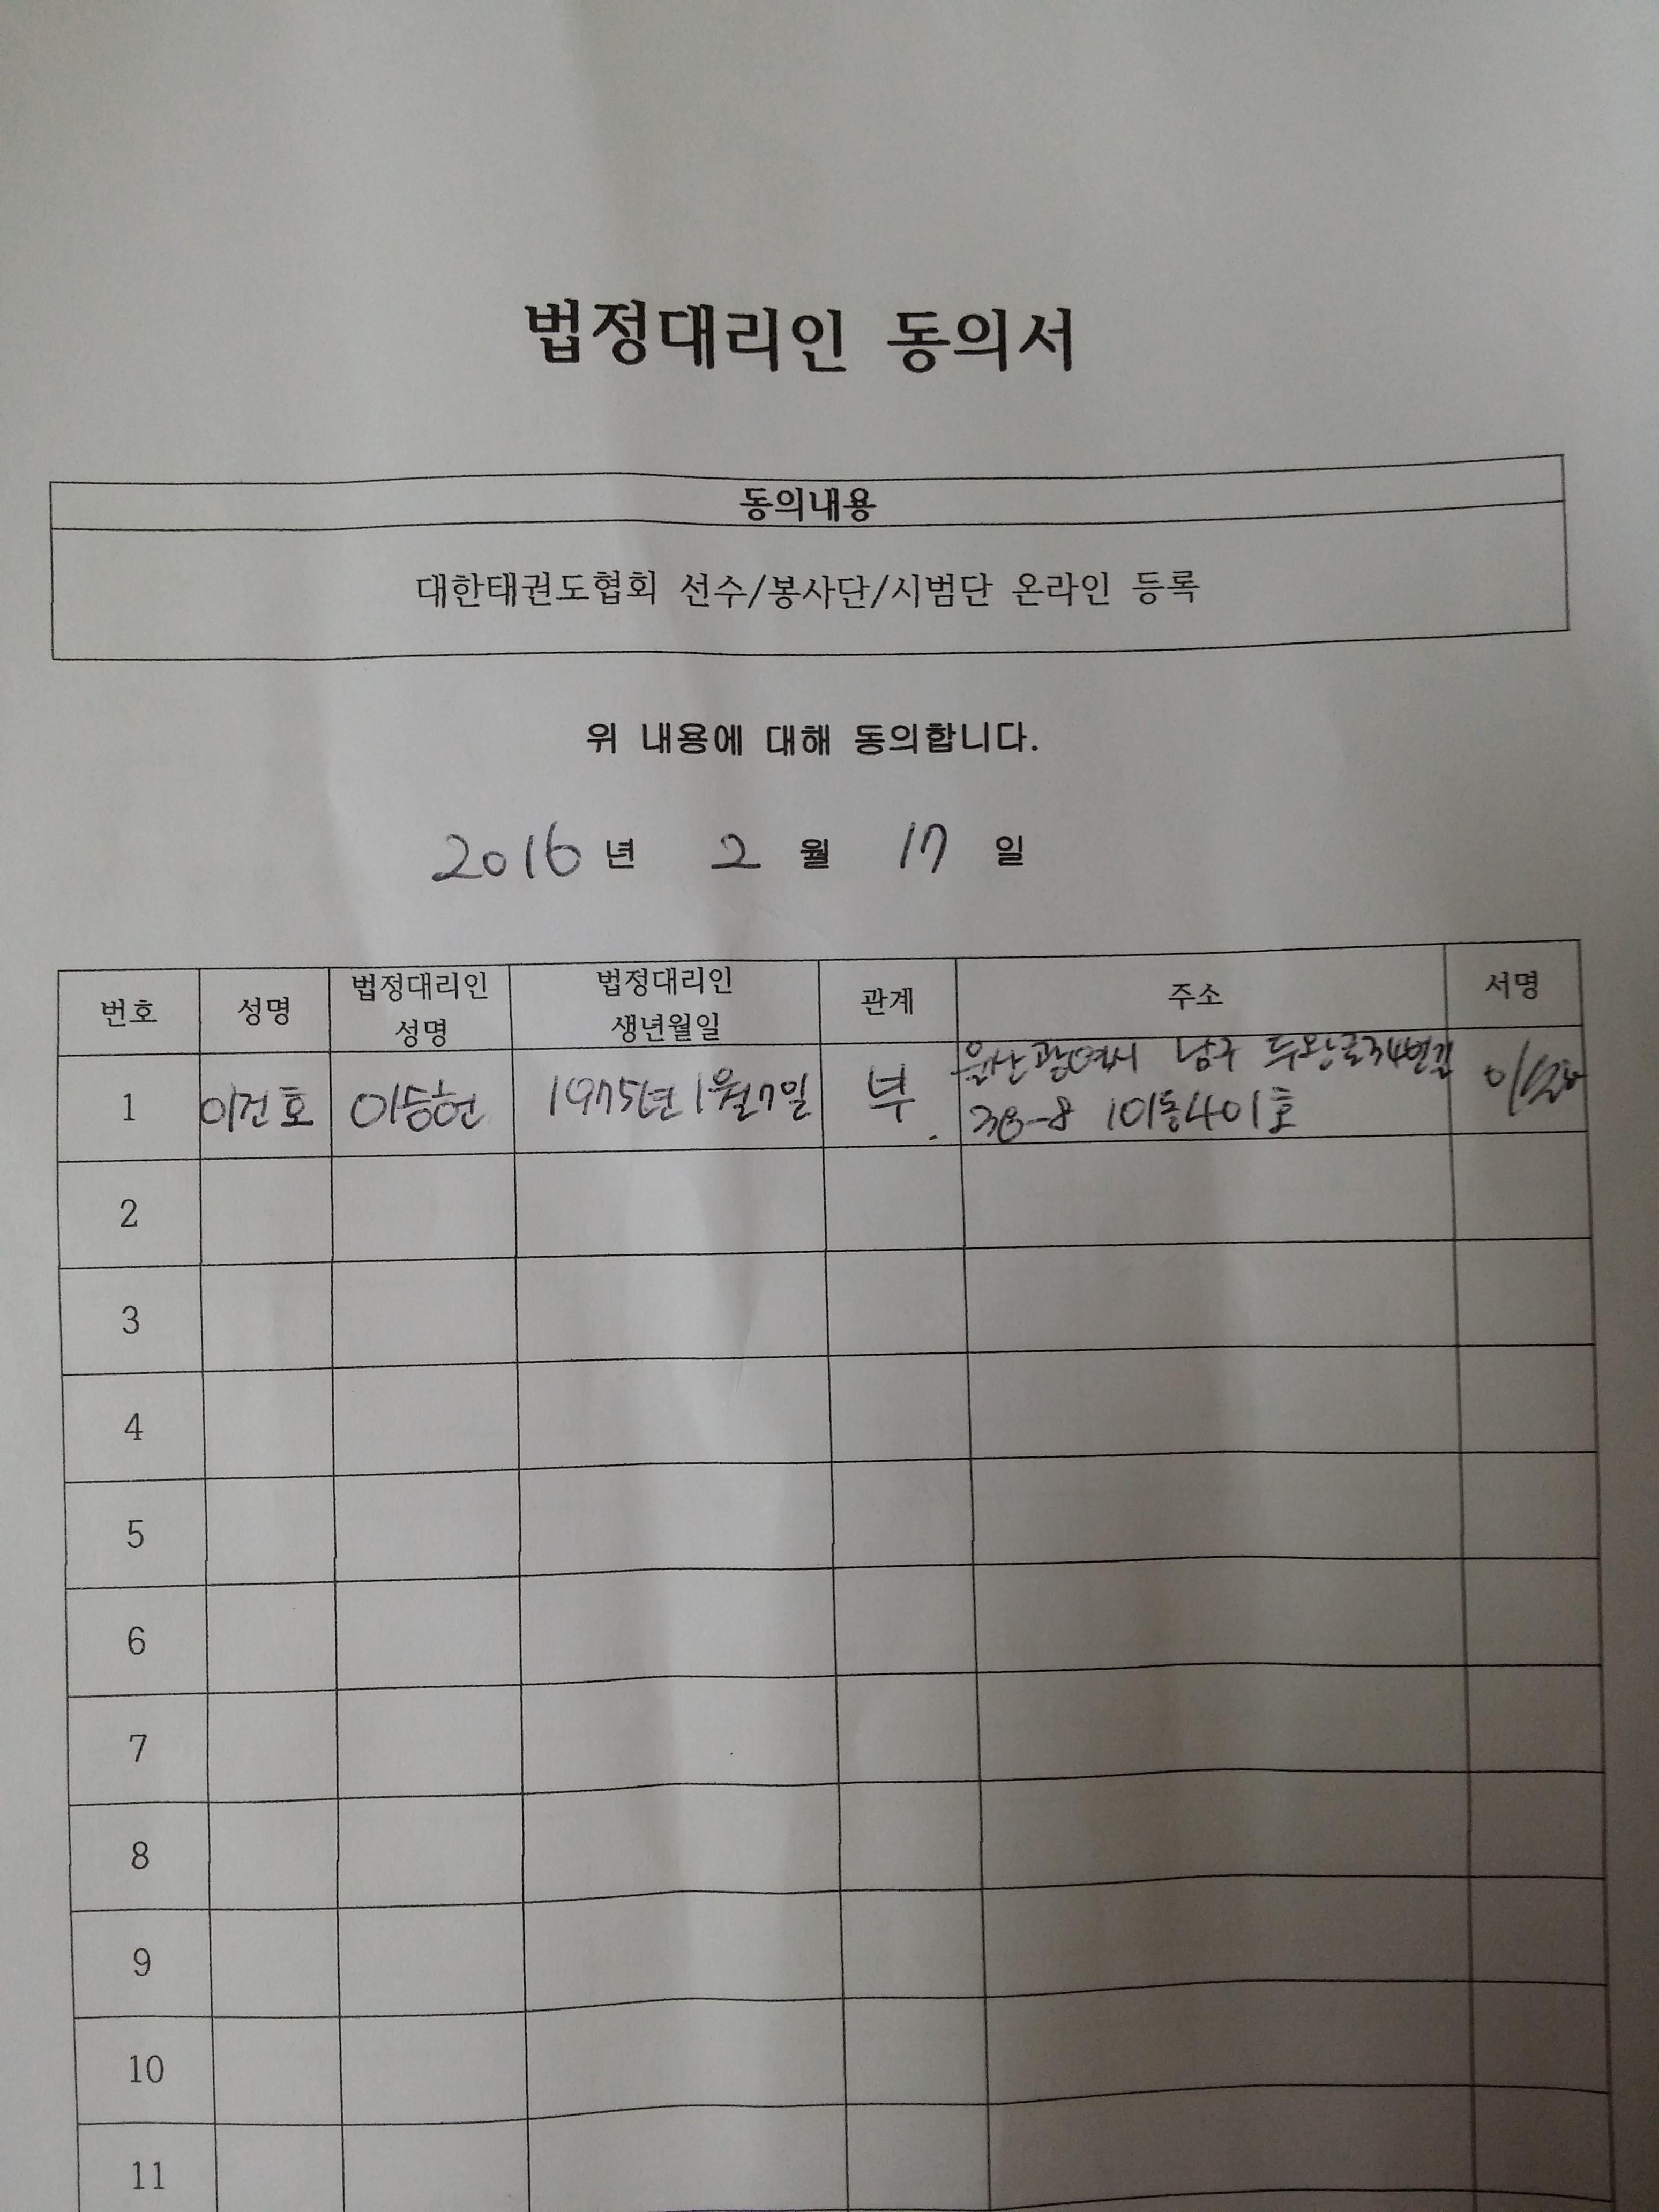 법정대리인 동의서
동의내용
대한태권도협회 선수/봉사단/시범단 온라인 등록
위 내용에 대해 동의합니다.
2016 년 2 월 17 일
번호 성명 법정대리인 성명 법정대리인 생년월일 관계 주소 서명
1 이건호 이승헌 1975년 1월 7일 부 울산광역시 남구 두왕로34번길
38-8 101동 401호
2
3
4
5
6
7
8
9
10
11